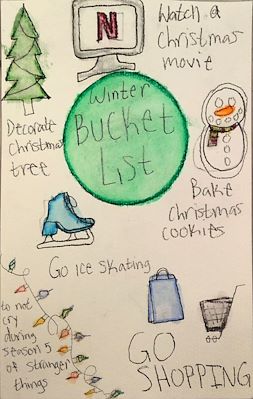 N
Watch a
Christmas
movie
Winter
Bucket
List
Decorate
Christmas
tree
Bake
Christmas
cookies
Go ice skating
to not
cry
during
season 5
of stranger
things
GO
SHOPPING